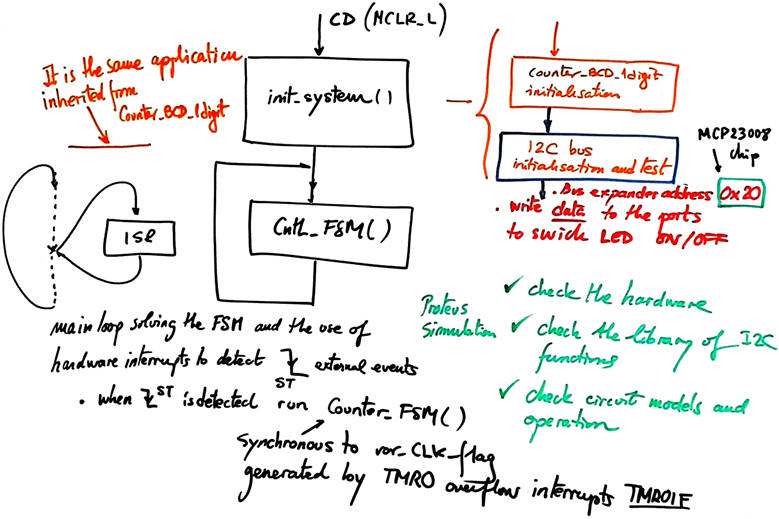 CD (MCLR_L)
It is the same application
inherited from
Counter_BCD_1digit
init_system()
counter_BCD_1digit
initialisation
I2C bus
initialisation and test
MCP23008
chip
• Bus expander address 0x20
• write data to the ports
to swich LED ON/OFF
ISR
CntL_FSM()
main loop solving the FSM and the use of
hardware interrupts to detect ST external events
• when ST is detected run Counter_FSM()
synchronous to var_CLK_flag
generated by TMR0 overflow interrupts TMR0IF
Proteus
Simulation
✓ check the hardware
✓ check the library of I2C
functions
✓ check circuit models and
operation